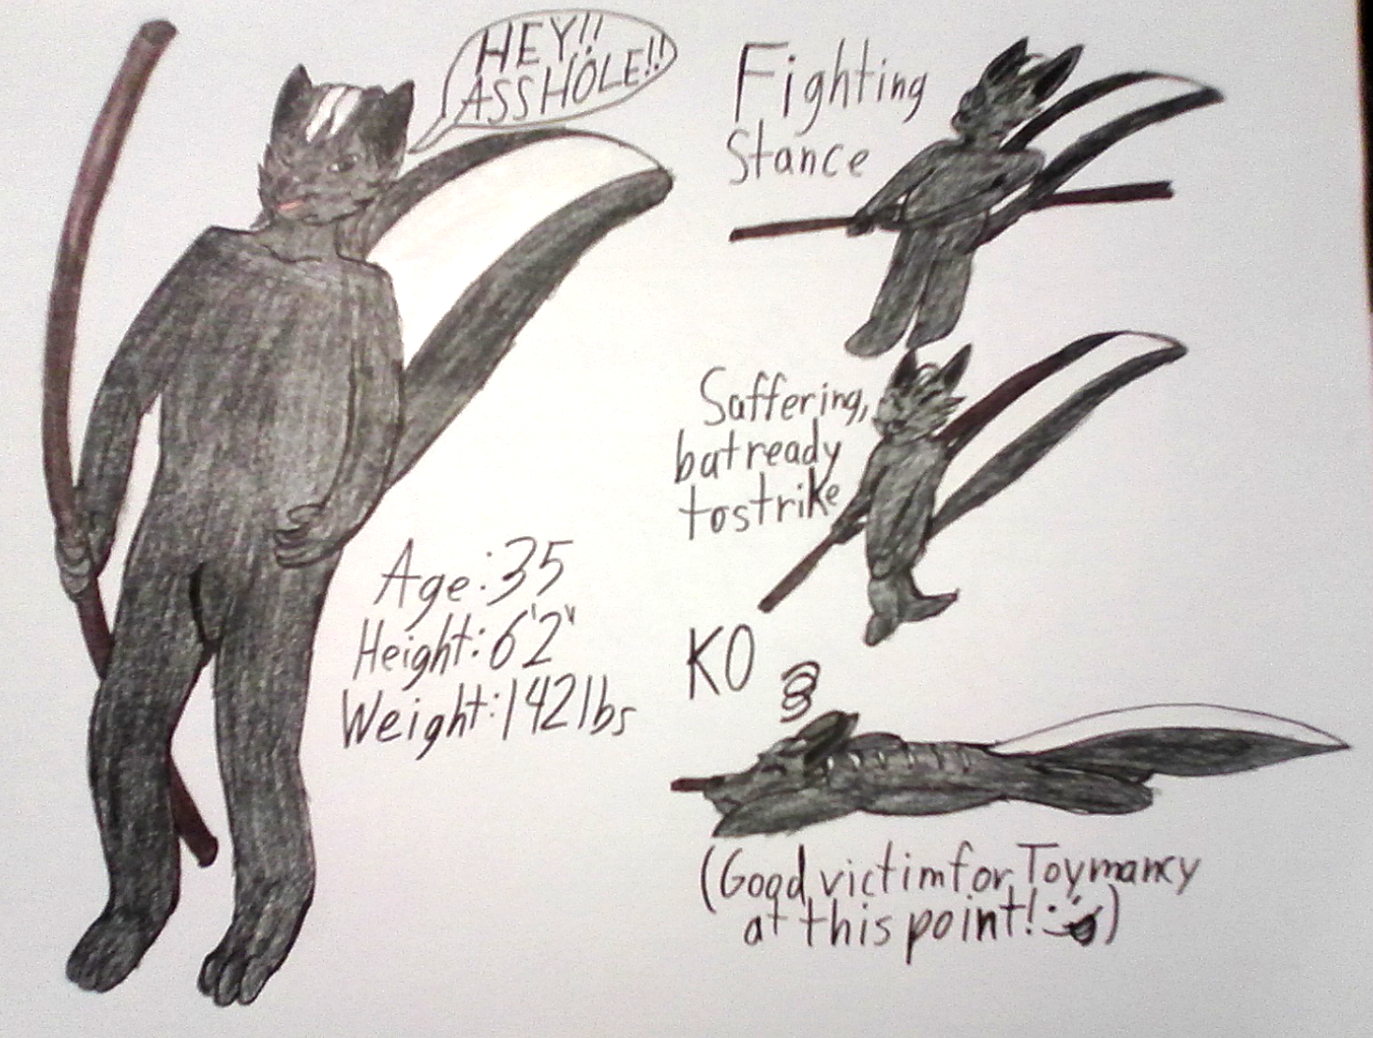 HEY!!
ASSHOLE!!
Fighting
Stance
Saffering,
bat ready
to strike
Age: 35
Height: 6'2"
Weight: 142 lbs
KO
(Good victim for Toymancy
at this point! :)